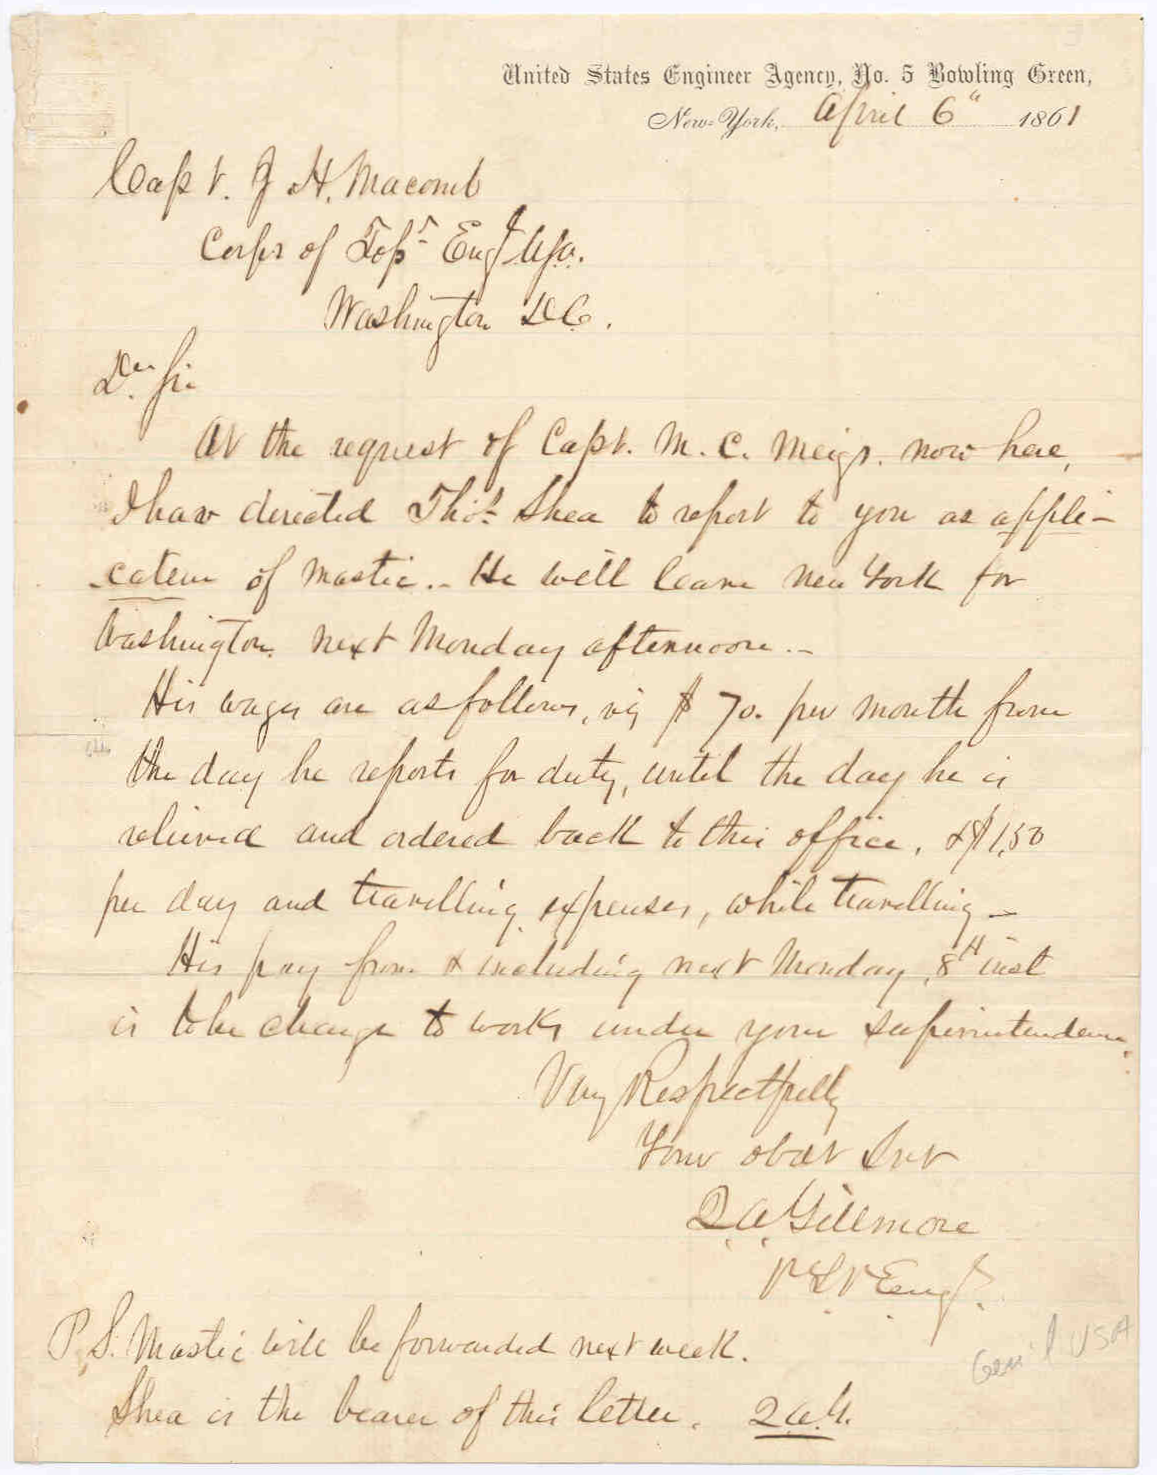 United States Engineer Agency, No. 5 Bowling Green,
New-York, April 6" 1861
Capt. J. H. Macomb
Corps of Topl Engr USA.
Washington D.C.
Dr. Sir
At the request of Capt. M. C. Meigs. now here,
I have directed Thos. Shea to report to you as appli-
-cateur of mastic.- He will leave New York for
Washington next Monday afternoon.-
His wages are as follows, viz $ 70. per month from
the day he reports for duty, until the day he is
relieved and ordered back to this office, & $1,50
per day and travelling expenses, while travelling -
His pay from & including next Monday, 8th inst
is to be charge to works under your superintendence.
Very Respectfully
Your obdt Svt
Q.A. Gillmore
Lt Engr.
P.S. Mastic will be forwarded next week.
Shea is the bearer of this letter. Q.A.G.
Genl USA